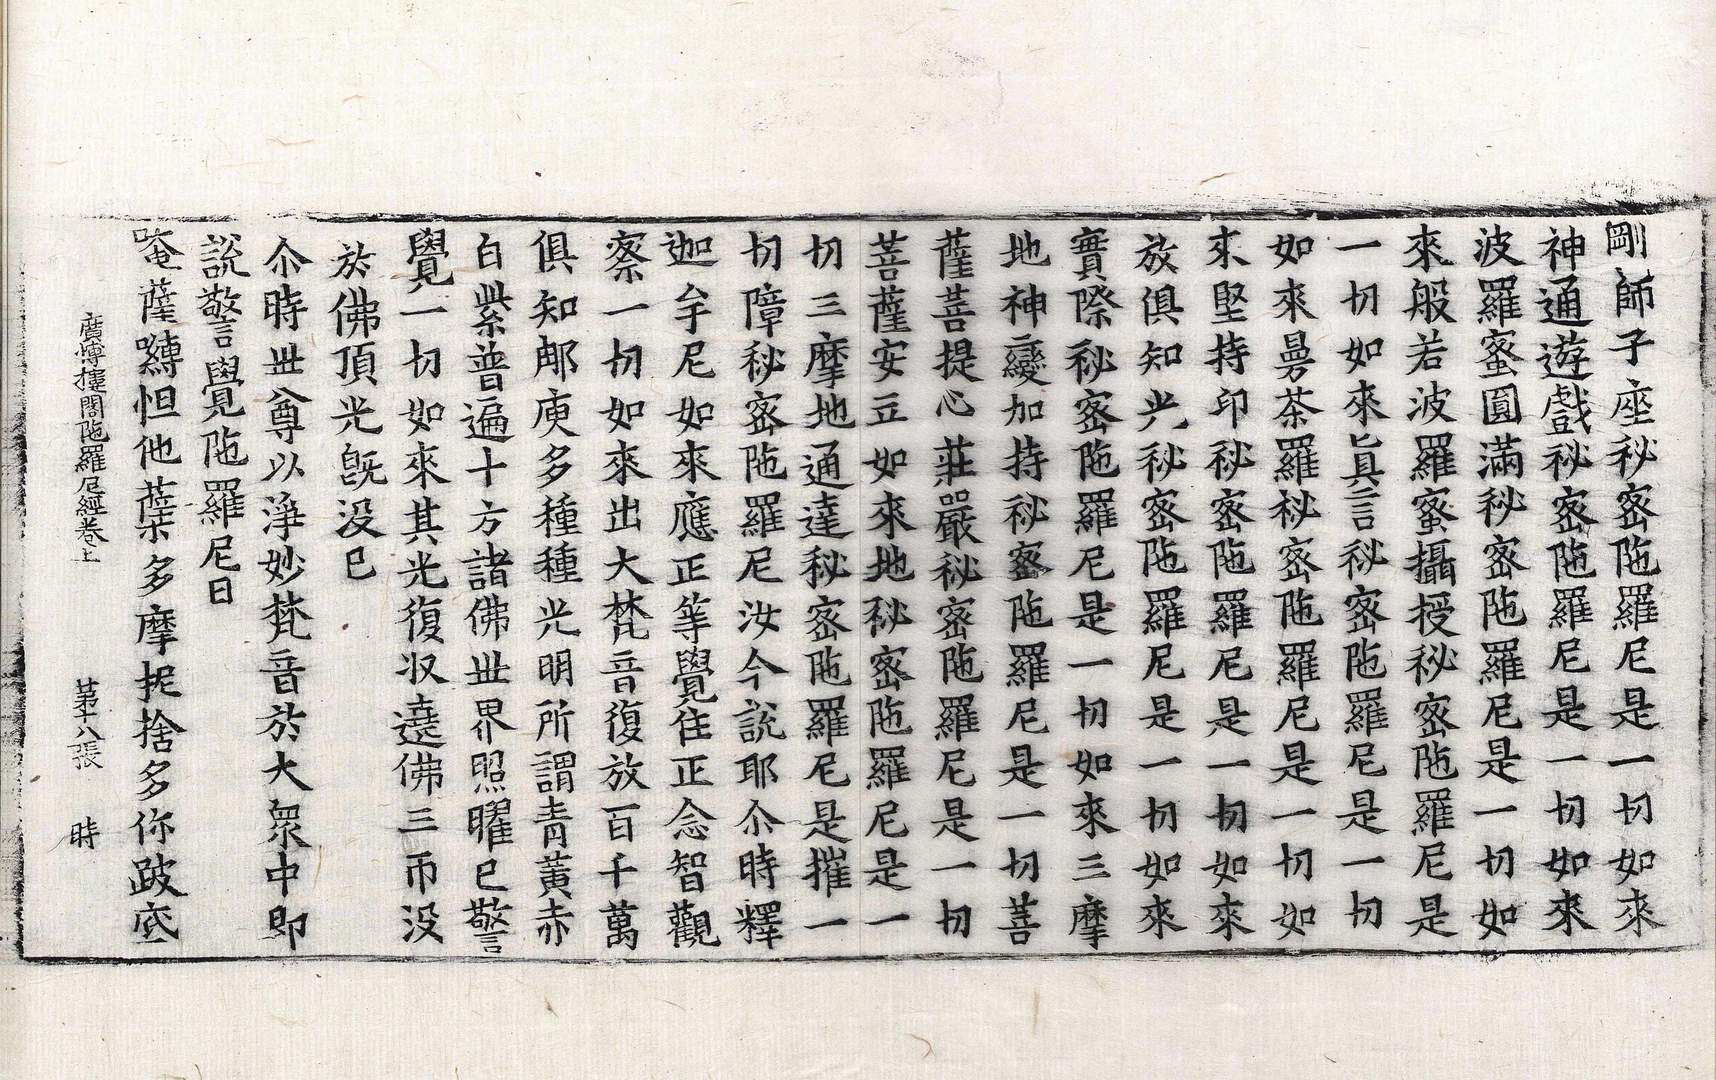 剛師子座秘密陁羅尼是一切如來
神通遊戲秘密陁羅尼是一切如來
波羅蜜圓滿秘密陁羅尼是一切如
來般若波羅蜜攝授秘密陁羅尼是
一切如來眞言秘密陁羅尼是一切
如來曼荼羅秘密陁羅尼是一切如
來堅持印秘密陁羅尼是一切如來
放俱知光秘密陁羅尼是一切如來
實際秘密陁羅尼是一切如來三摩
地神變加持秘密陁羅尼是一切菩
薩菩提心莊嚴秘密陁羅尼是一切
菩薩安立如來地秘密陁羅尼是一
切三摩地通達秘密陁羅尼是摧一
切障秘密陁羅尼汝今說耶尒時釋
迦牟尼如來應正等覺住正念智觀
察一切如來出大梵音復放百千萬
俱知那庾多種種光明所謂青黃赤
白紫普遍十方諸佛世界照曜已警
覺一切如來其光復收遶佛三帀没
於佛頂光旣没已
尒時世尊以淨妙梵音於大衆中即
說警覺陁羅尼曰
唵薩嚩怛他蘖多摩抳捨多你跛
廣博樓閣陁羅尼經卷上 第十八張 時